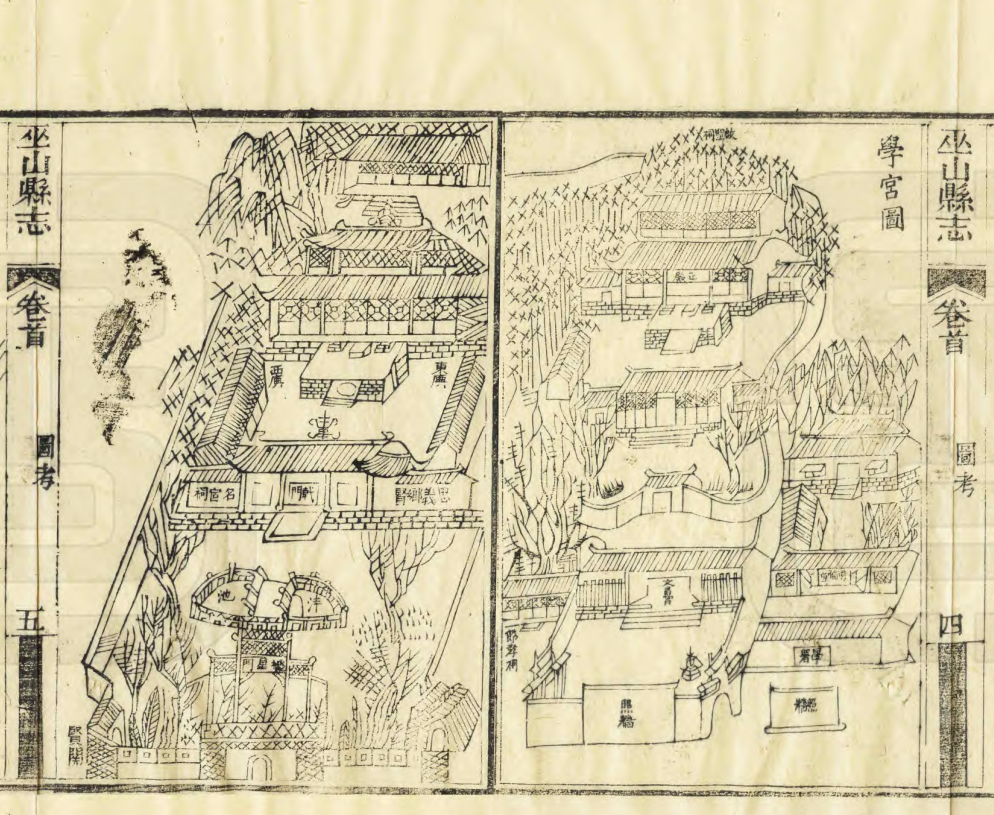 巫山縣志
卷首
圖考
四
學宮圖
啟聖祠
正殿
文昌宮
照牆
學署
照牆
節孝祠
東廡
西廡
戟門
忠義鄉賢
名宦祠
泮
池
櫺星門
賢關
巫山縣志
卷首
圖考
五